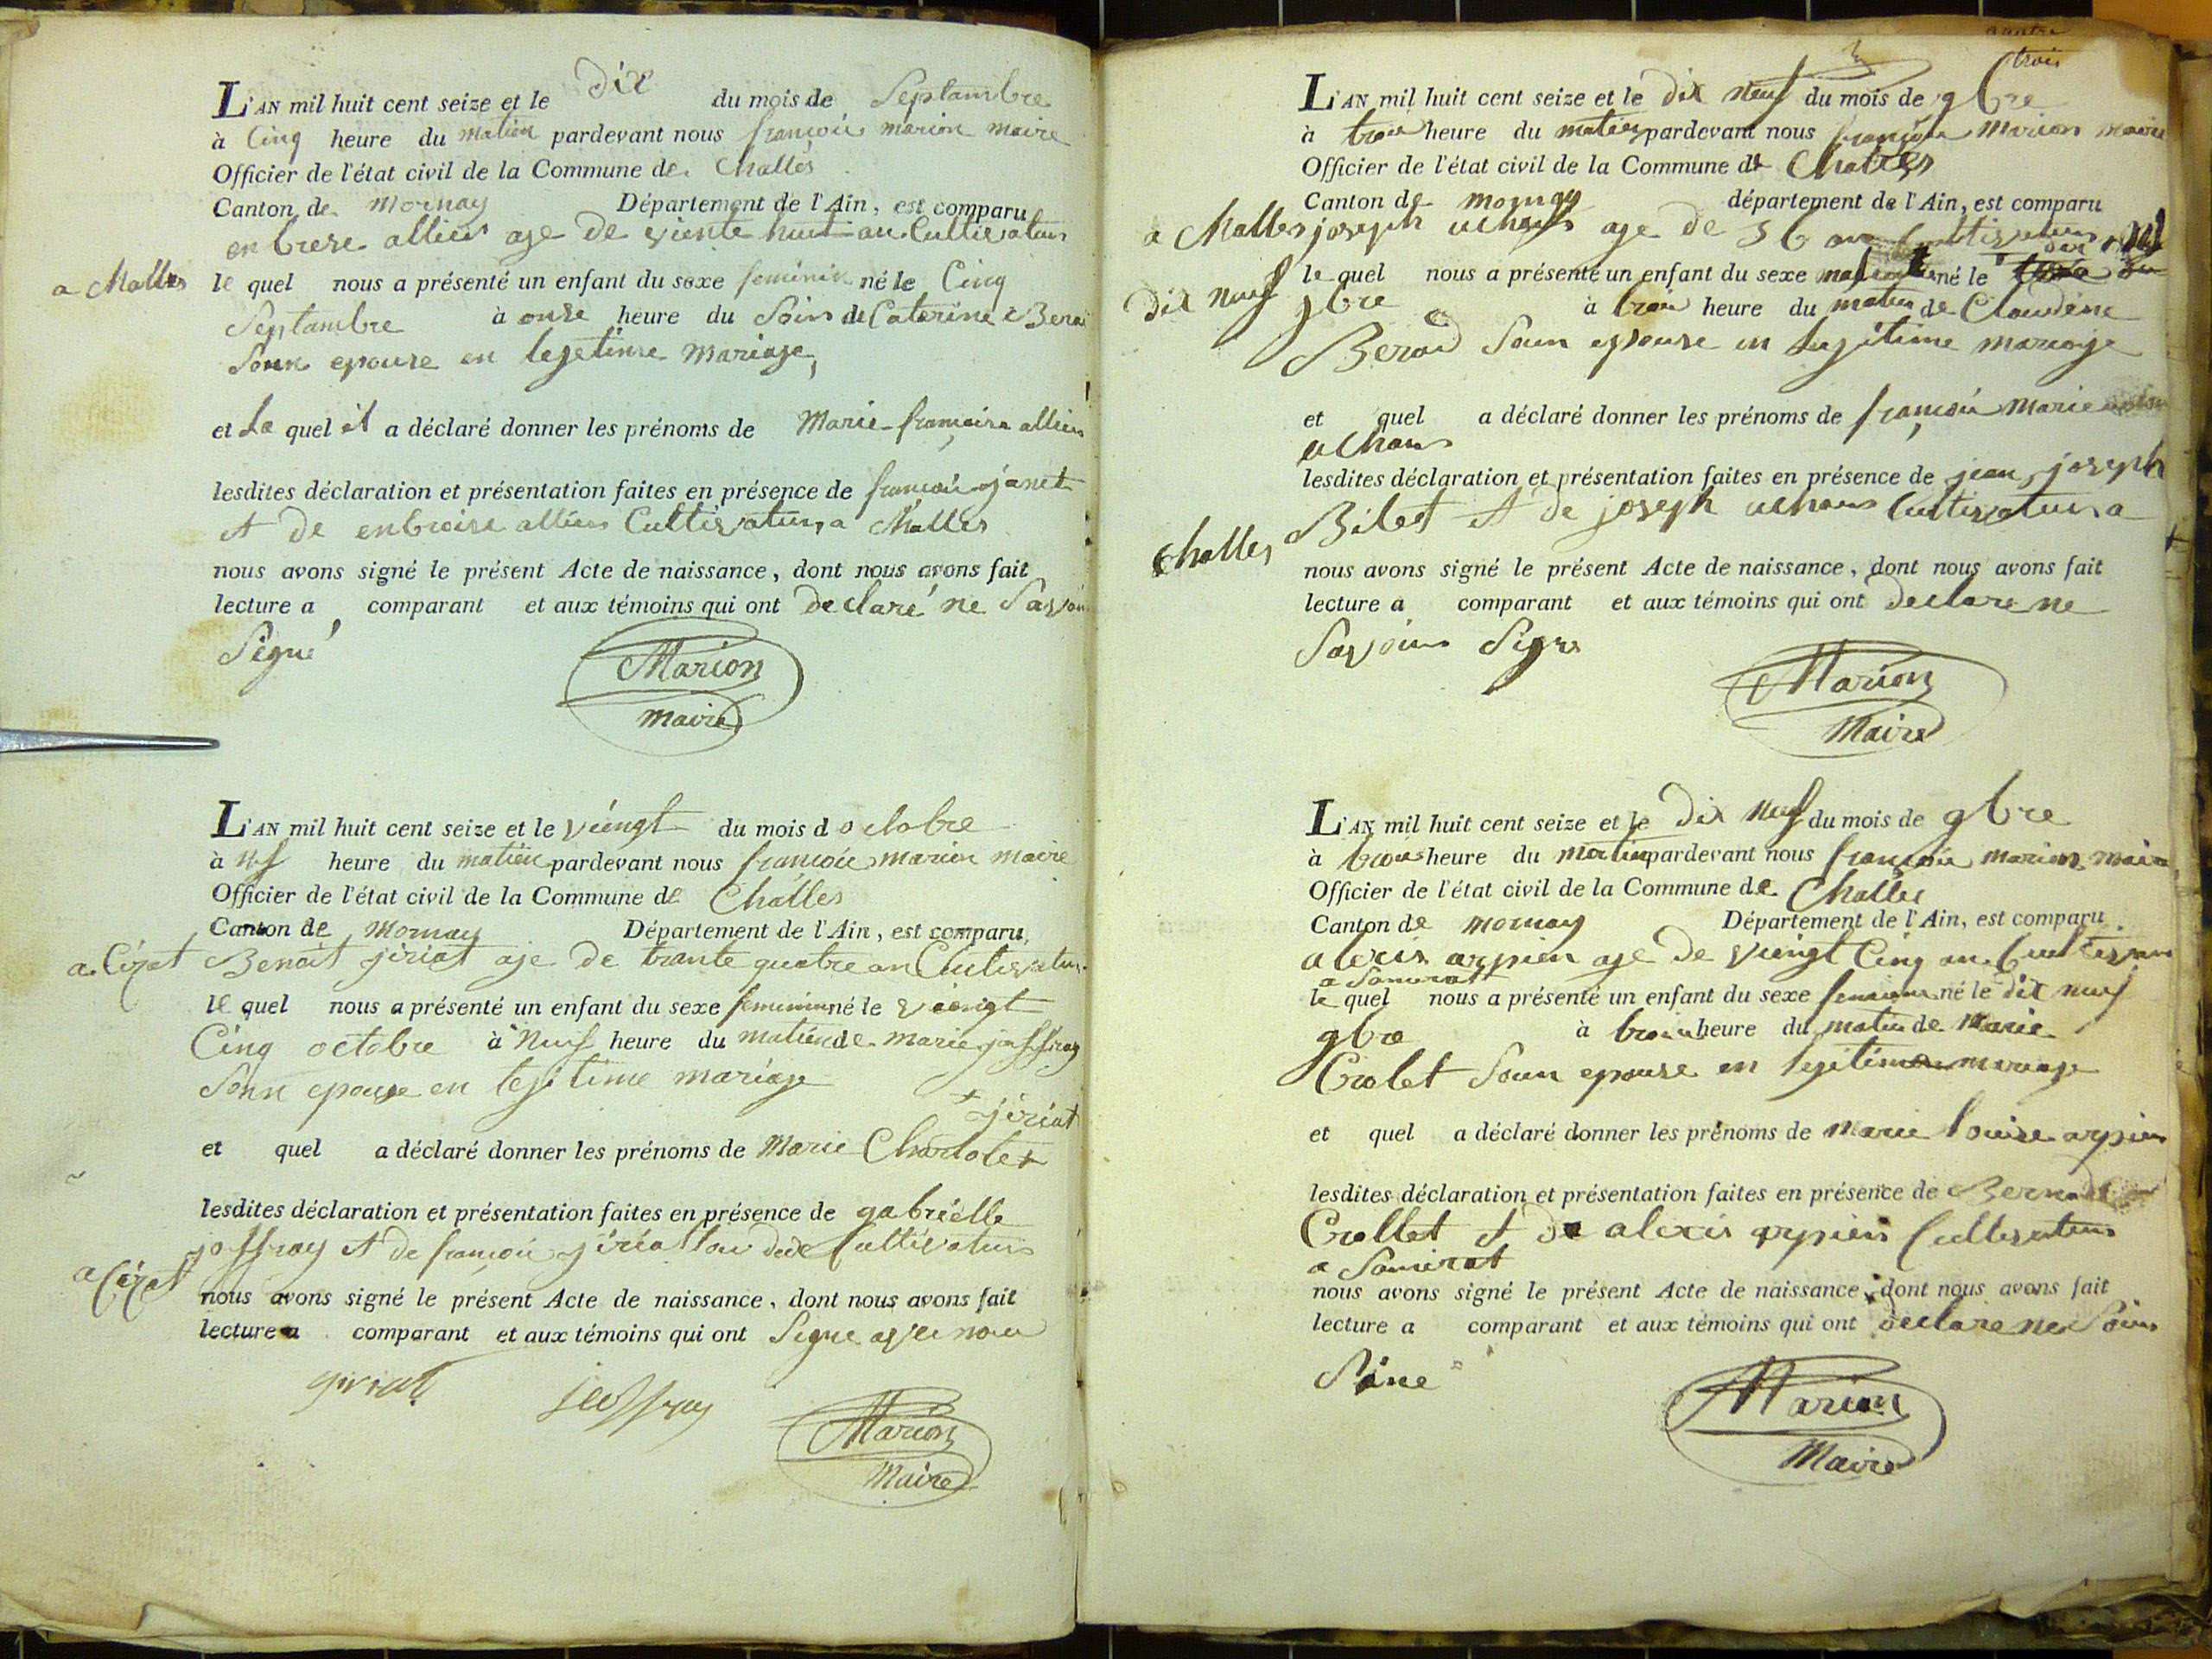 L'AN mil huit cent seize et le dix du mois de Septambre
à Cinq heure du matien pardevant nous françois marion maire
Officier de l'état civil de la Commune de Challes
Canton de Mornay Département de l'Ain, est comparu
enbrese allier age de viente huit an Cultivateur
a Challes le quel nous a présenté un enfant du sexe feminin né le Cinq
Septambre à onze heure du Soir de Caterine Berod
Sonn epouse en legetime mariage,
et Le quel il a déclaré donner les prénoms de Marie françoise allier
lesdites déclaration et présentation faites en présence de françois janet
et de enbroise allier Cultivateur a Challes
nous avons signé le présent Acte de naissance, dont nous avons fait
lecture a comparant et aux témoins qui ont declaré ne Savoir
Signé
Marion
maire
L'AN mil huit cent seize et le viengt du mois d octobre
à nf heure du matien pardevant nous françois marion maire
Officier de l'état civil de la Commune de Challes
Canton de Mornay Département de l'Ain, est comparu,
a Cizat Benoit jiriat age de trante quatre an Cultivateur
le quel nous a présenté un enfant du sexe feminin né le viengt
Cinq octobre à Neuf heure du matien de marie joffray
Sonn epouse en legitime mariage
+ jiriat
et quel a déclaré donner les prénoms de Marie Charlote +
lesdites déclaration et présentation faites en présence de gabrielle
joffray et de françois jiriat Cultivateur
a Cizat
nous avons signé le présent Acte de naissance, dont nous avons fait
lecture a comparant et aux témoins qui ont Signe avec nou
giriat joffray
Marion
Maire
trois
L'AN mil huit cent seize et le dix neuf du mois de 9bre
à trois heure du matien pardevant nous françois Marion maire
Officier de l'état civil de la Commune de Challes
Canton de mornay département de l'Ain, est comparu
a Challes joseph uchars age de 36 an Cultivateur
le quel nous a présenté un enfant du sexe né le
dix neuf 9bre à trois heure du matin de Claudine
Berod Soun epouse en legitime mariage
et quel a déclaré donner les prénoms de françois marie
uchars
lesdites déclaration et présentation faites en présence de jean joseph
Bilet et de joseph uchars Cultivateur a
Challes
nous avons signé le présent Acte de naissance, dont nous avons fait
lecture a comparant et aux témoins qui ont declare ne
Savoir Signe
Marion
Maire
L'AN mil huit cent seize et le dix neuf du mois de 9bre
à trois heure du matin pardevant nous françois marion maire
Officier de l'état civil de la Commune de Challes
Canton de mornay Département de l'Ain, est comparu
alexis arpien age de viengt Cinq an
a Samerat
le quel nous a présenté un enfant du sexe feminin né le dix neuf
9bre à trois heure du matin de Marie
Crolet Soun epouse en legitime mariage
et quel a déclaré donner les prénoms de Marie louise arpien
lesdites déclaration et présentation faites en présence de Bernard
Crollet et de alexis arpien Cultivateur
a Samerat
nous avons signé le présent Acte de naissance, dont nous avons fait
lecture a comparant et aux témoins qui ont declare ne Savoir
Sine
Marion
Maire